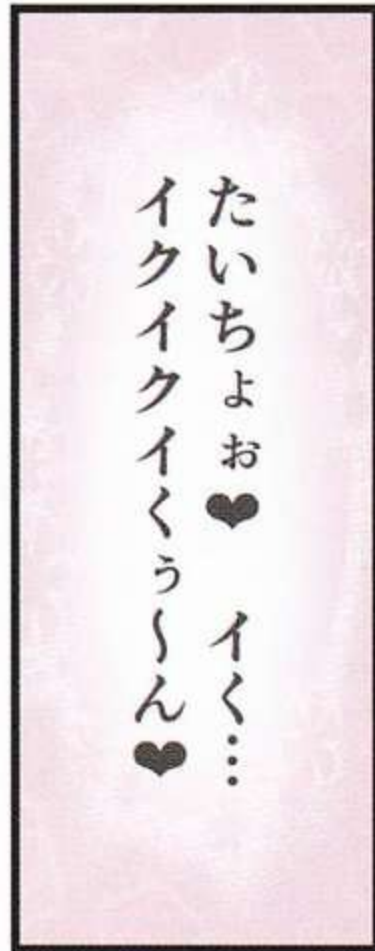 たいちょぉ❤ イく…
イクイクイくぅ～ん❤